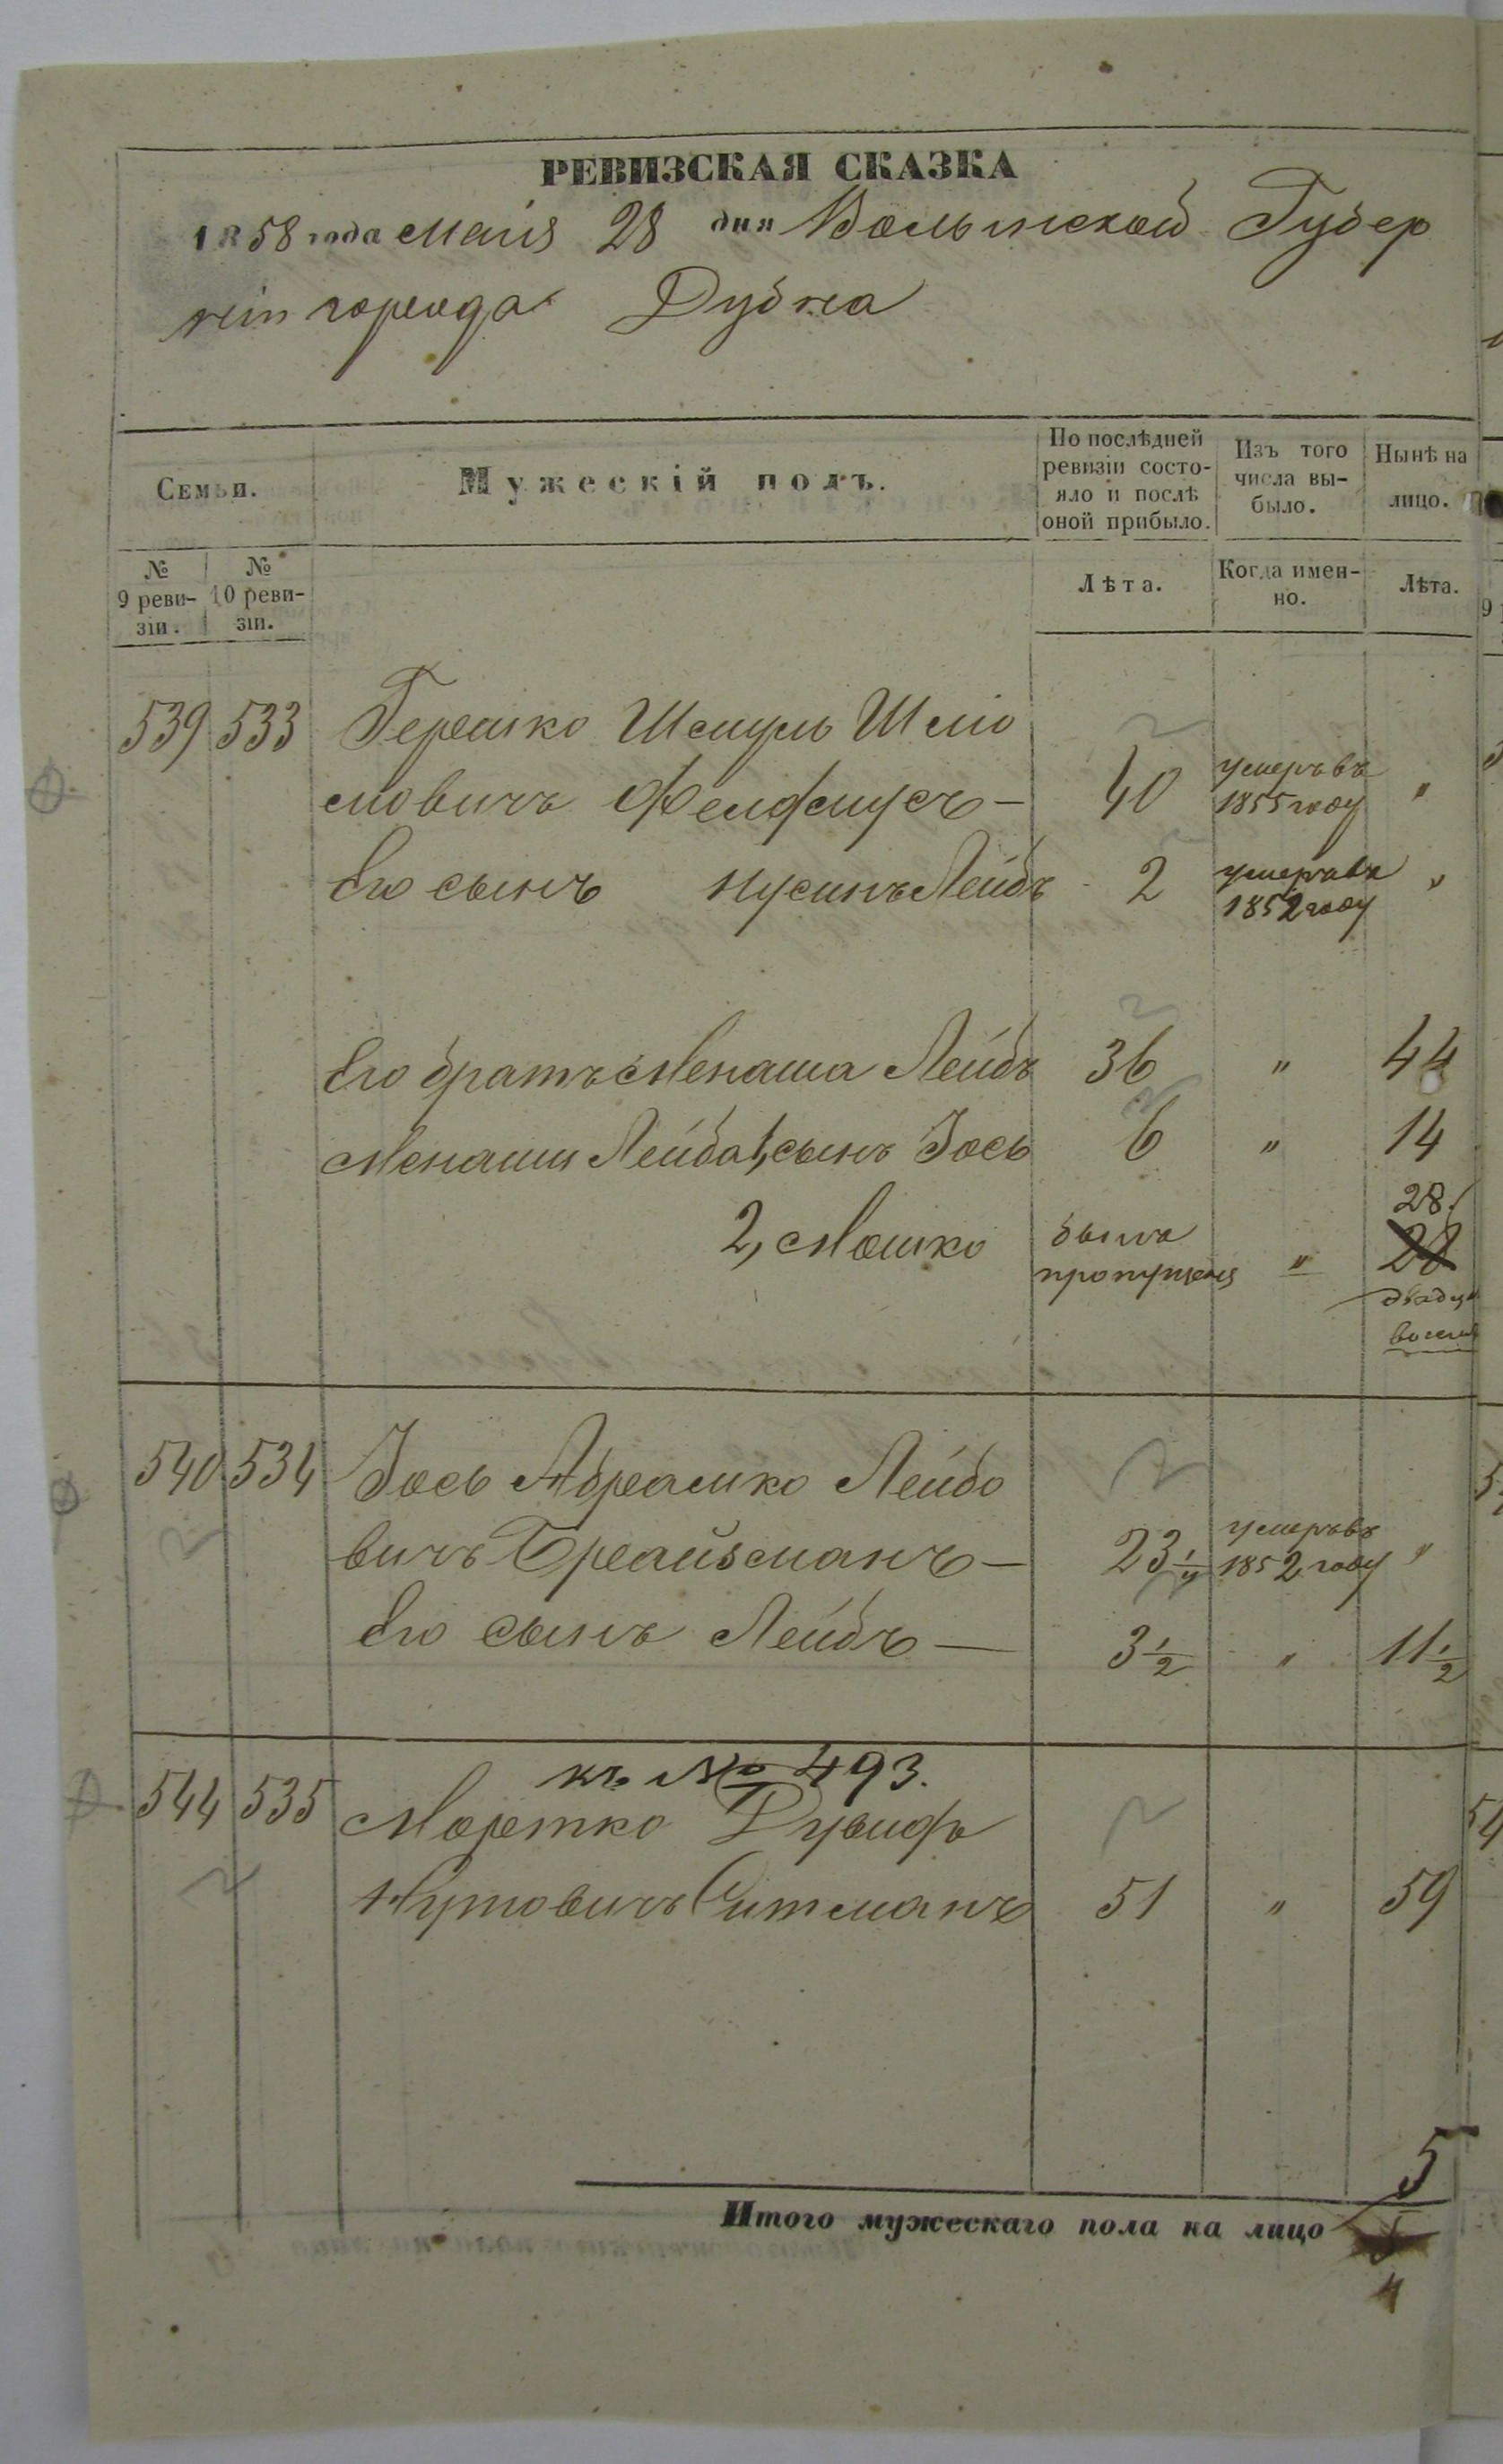 РЕВИЗСКАЯ СКАЗКА
1858 года Маія 28 дня Волынской Губер
ніи города Дубна
Семьи.
Мужескій полъ.
По послѣдней ревизіи состо-
яло и послѣ
оной прибыло.
Изъ того
числа вы-
было.
Нынѣ на
лицо.
№
9 реви-
зіи.
№
10 реви-
зіи.
Лѣта.
Когда имен-
но.
Лѣта.
539 533 Гершко Шмуль Шлio
мовичъ – 40 умеръ въ 1855 году "
Его сынъ Нусинъ Лейбъ 2 умеръ въ 1852 году "
Его братъ Менаша Лейбъ 36 " 44
Менаши Лейба 1, сынъ Іось 6 " 14
28.
2, Мошко былъ пропущенъ " 28
двадца
восемь
540 534 Іось Абрамко Лейбо
вичъ Брайзманъ – 23 умеръ въ 1852 году "
Его сынъ Лейбъ – 3 1/2 " 11 1/2
къ № 493.
544 535 Мортко
51 " 59
5
Итого мужескаго пола на лицо
4